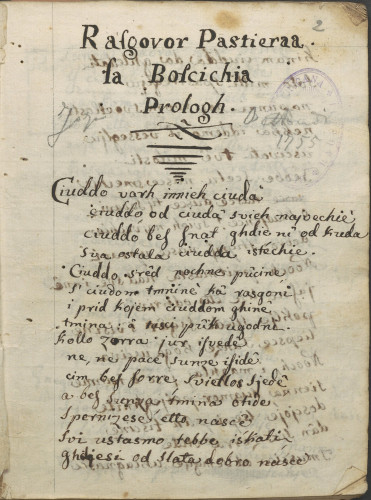 2
Rasgovor Pastieraa.
sa Boscichia
Prologh.
1755
Ciuddo varh innieh ciudà
ciuddo od ciuda svieh najvechiè
ciuddo bes snat ghdie ni od kuda
Sva ostala ciudda istechie.
Ciuddo sred nochne pucine
si ciudom tmnine kà rasgoni
i prid kojem ciuddom ghine
tmina, i à prik ugodni
kollo zorra jur isvede
ne, ne pacè sunze iside
cim bes sorre svietlos sjede
a bes sunza tmina otide
Spernizese etto nascè
Svi ustasmo tebbe iskati
ghdjesi od slata dobro nasce